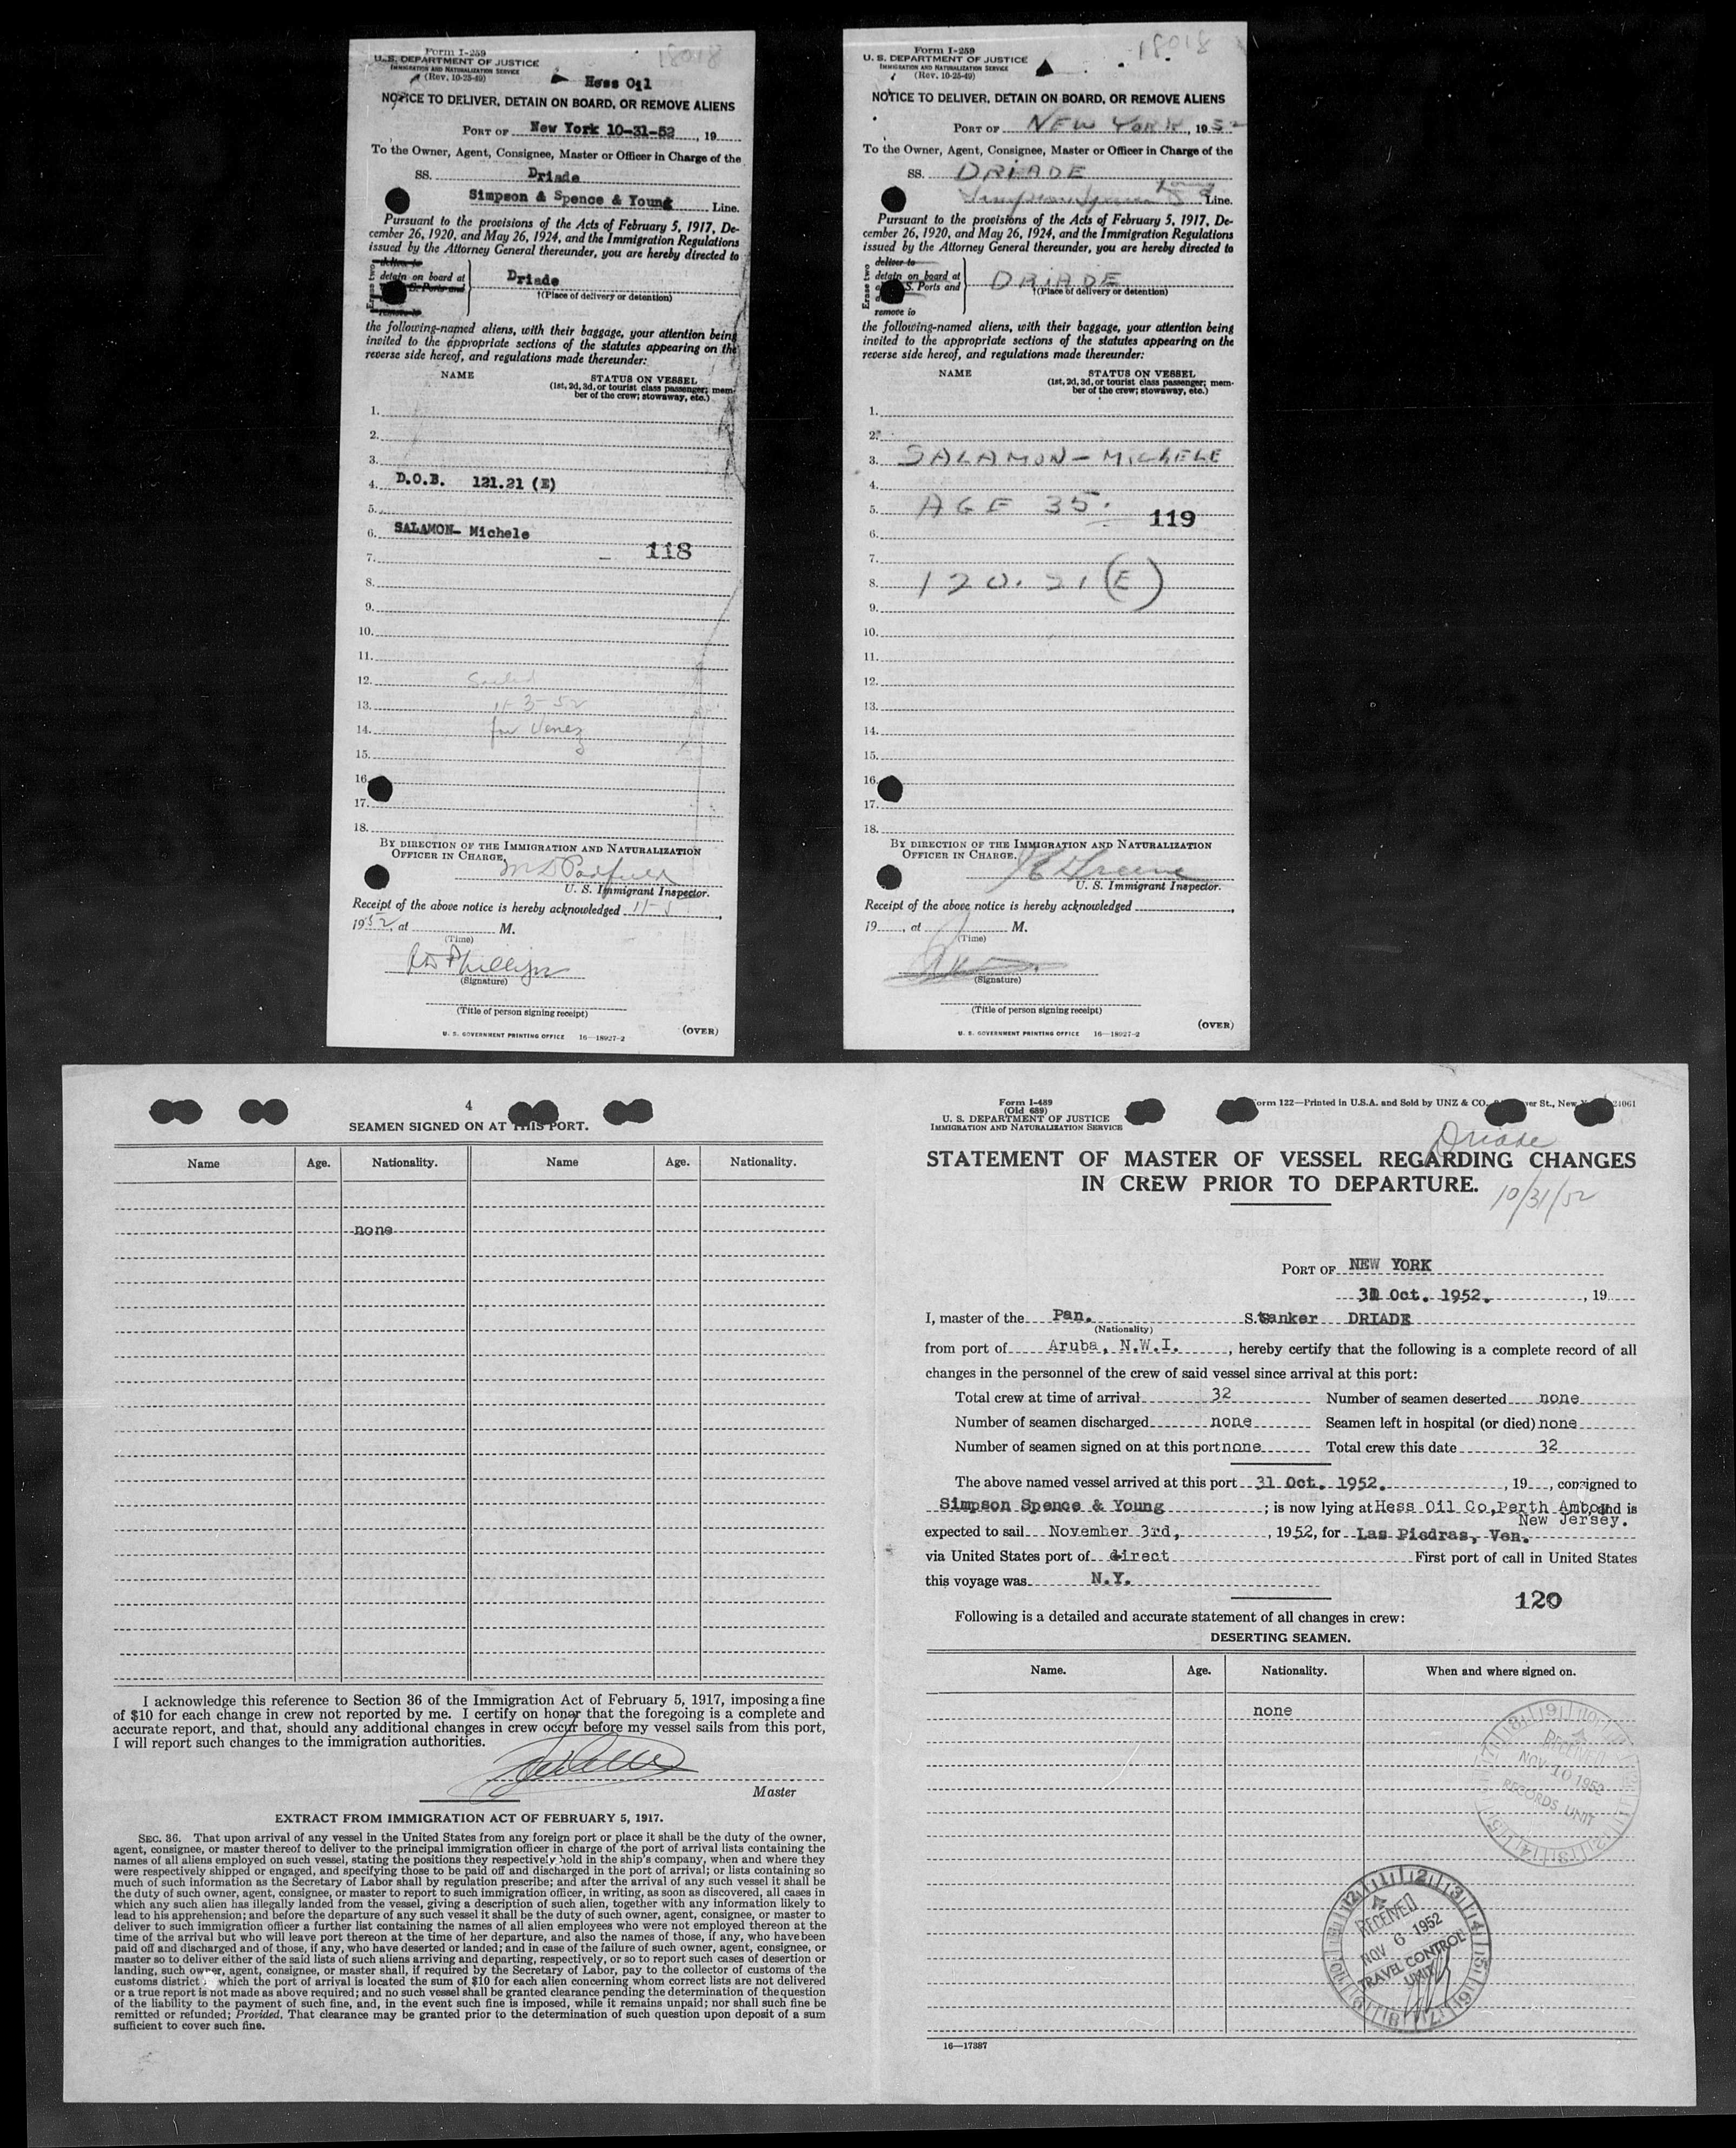 Form I-259
U. S. DEPARTMENT OF JUSTICE
IMMIGRATION AND NATURALIZATION SERVICE
(Rev. 10-25-49)
18018
Hess Oil
NOTICE TO DELIVER, DETAIN ON BOARD, OR REMOVE ALIENS
PORT OF New York 10-31-52, 19
To the Owner, Agent, Consignee, Master or Officer in Charge of the
SS. Driade
Simpson & Spence & Young Line.
Pursuant to the provisions of the Acts of February 5, 1917, De-
cember 26, 1920, and May 26, 1924, and the Immigration Regulations
issued by the Attorney General thereunder, you are hereby directed to
deliver to
detain on board at
S. Ports and
remove to
Erase two
Driade
†(Place of delivery or detention)
the following-named aliens, with their baggage, your attention being
invited to the appropriate sections of the statutes appearing on the
reverse side hereof, and regulations made thereunder:
NAME STATUS ON VESSEL
(1st, 2d, 3d, or tourist class passenger; mem-
ber of the crew; stowaway, etc.)
1.
2.
3.
4. D.O.B. 121.21 (E)
5.
6. SALAMON- Michele
118
7.
8.
9.
10.
11.
12. Sailed
13. 11-3-52
14. for Venez
15.
16.
17.
18.
BY DIRECTION OF THE IMMIGRATION AND NATURALIZATION
OFFICER IN CHARGE,
M D Padfield
U. S. Immigrant Inspector.
Receipt of the above notice is hereby acknowledged 11-3,
1952, at M.
(Time)
Phillips
(Signature)
(Title of person signing receipt)
U. S. GOVERNMENT PRINTING OFFICE 16—18927-2
(OVER)
Form I-259
U. S. DEPARTMENT OF JUSTICE
IMMIGRATION AND NATURALIZATION SERVICE
(Rev. 10-25-49)
18018
NOTICE TO DELIVER, DETAIN ON BOARD, OR REMOVE ALIENS
PORT OF NEW YORK, 1952
To the Owner, Agent, Consignee, Master or Officer in Charge of the
SS. DRIADE
Simpson Spence Young Line.
Pursuant to the provisions of the Acts of February 5, 1917, De-
cember 26, 1920, and May 26, 1924, and the Immigration Regulations
issued by the Attorney General thereunder, you are hereby directed to
deliver to
detain on board at
S. Ports and
remove to
Erase two
DRIADE
†(Place of delivery or detention)
the following-named aliens, with their baggage, your attention being
invited to the appropriate sections of the statutes appearing on the
reverse side hereof, and regulations made thereunder:
NAME STATUS ON VESSEL
(1st, 2d, 3d, or tourist class passenger; mem-
ber of the crew; stowaway, etc.)
1.
2.
3. SALAMON - MICHELE
4.
5. AGE 35.
119
6.
7.
8. 120.21 (E)
9.
10.
11.
12.
13.
14.
15.
16.
17.
18.
BY DIRECTION OF THE IMMIGRATION AND NATURALIZATION
OFFICER IN CHARGE,
Greene
U. S. Immigrant Inspector.
Receipt of the above notice is hereby acknowledged ,
19 , at M.
(Time)
(Signature)
(Title of person signing receipt)
U. S. GOVERNMENT PRINTING OFFICE 16—18927-2
(OVER)
4
SEAMEN SIGNED ON AT THIS PORT.
Name Age. Nationality. Name Age. Nationality.
none
I acknowledge this reference to Section 36 of the Immigration Act of February 5, 1917, imposing a fine
of $10 for each change in crew not reported by me. I certify on honor that the foregoing is a complete and
accurate report, and that, should any additional changes in crew occur before my vessel sails from this port,
I will report such changes to the immigration authorities.
Master
EXTRACT FROM IMMIGRATION ACT OF FEBRUARY 5, 1917.
SEC. 36. That upon arrival of any vessel in the United States from any foreign port or place it shall be the duty of the owner,
agent, consignee, or master thereof to deliver to the principal immigration officer in charge of the port of arrival lists containing the
names of all aliens employed on such vessel, stating the positions they respectively hold in the ship's company, when and where they
were respectively shipped or engaged, and specifying those to be paid off and discharged in the port of arrival; or lists containing so
much of such information as the Secretary of Labor shall by regulation prescribe; and after the arrival of any such vessel it shall be
the duty of such owner, agent, consignee, or master to report to such immigration officer, in writing, as soon as discovered, all cases in
which any such alien has illegally landed from the vessel, giving a description of such alien, together with any information likely to
lead to his apprehension; and before the departure of any such vessel it shall be the duty of such owner, agent, consignee, or master to
deliver to such immigration officer a further list containing the names of all alien employees who were not employed thereon at the
time of the arrival but who will leave port thereon at the time of her departure, and also the names of those, if any, who have been
paid off and discharged and of those, if any, who have deserted or landed; and in case of the failure of such owner, agent, consignee, or
master so to deliver either of the said lists of such aliens arriving and departing, respectively, or so to report such cases of desertion or
landing, such owner, agent, consignee, or master shall, if required by the Secretary of Labor, pay to the collector of customs of the
customs district which the port of arrival is located the sum of $10 for each alien concerning whom correct lists are not delivered
or a true report is not made as above required; and no such vessel shall be granted clearance pending the determination of the question
of the liability to the payment of such fine, and, in the event such fine is imposed, while it remains unpaid; nor shall such fine be
remitted or refunded; Provided, That clearance may be granted prior to the determination of such question upon deposit of a sum
sufficient to cover such fine.
Form I-489
(Old 689)
U. S. DEPARTMENT OF JUSTICE
IMMIGRATION AND NATURALIZATION SERVICE
Form 122—Printed in U.S.A. and Sold by UNZ & CO. St., New 24061
Driade
STATEMENT OF MASTER OF VESSEL REGARDING CHANGES
IN CREW PRIOR TO DEPARTURE.
10/31/52
PORT OF NEW YORK
31 Oct. 1952. , 19
I, master of the Pan. S. tanker DRIADE
(Nationality)
from port of Aruba, N.W.I. , hereby certify that the following is a complete record of all
changes in the personnel of the crew of said vessel since arrival at this port:
Total crew at time of arrival 32 Number of seamen deserted none
Number of seamen discharged none Seamen left in hospital (or died) none
Number of seamen signed on at this port none Total crew this date 32
The above named vessel arrived at this port 31 Oct. 1952. , 19 , consigned to
Simpson Spence & Young ; is now lying at Hess Oil Co, Perth Amboy and is
New Jersey.
expected to sail November 3rd, , 1952, for Las Piedras, Ven.
via United States port of direct First port of call in United States
this voyage was N.Y.
120
Following is a detailed and accurate statement of all changes in crew:
DESERTING SEAMEN.
Name. Age. Nationality. When and where signed on.
none
RECEIVED
NOV 10 1952
RECORDS UNIT
RECEIVED
NOV 6 1952
TRAVEL CONTROL
UNIT
16—17387